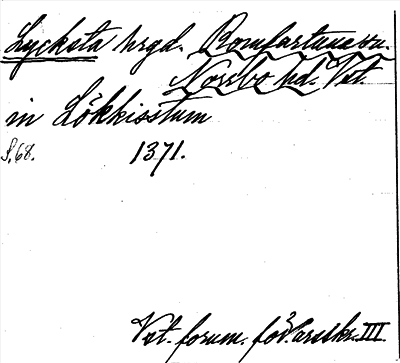 Lycksta hrgd. Romfartuna sn.
Norrbo hd. Vst.
in Lökkisstum
S. 68. 1371.
Vst. fornm. för:s årsskr. III